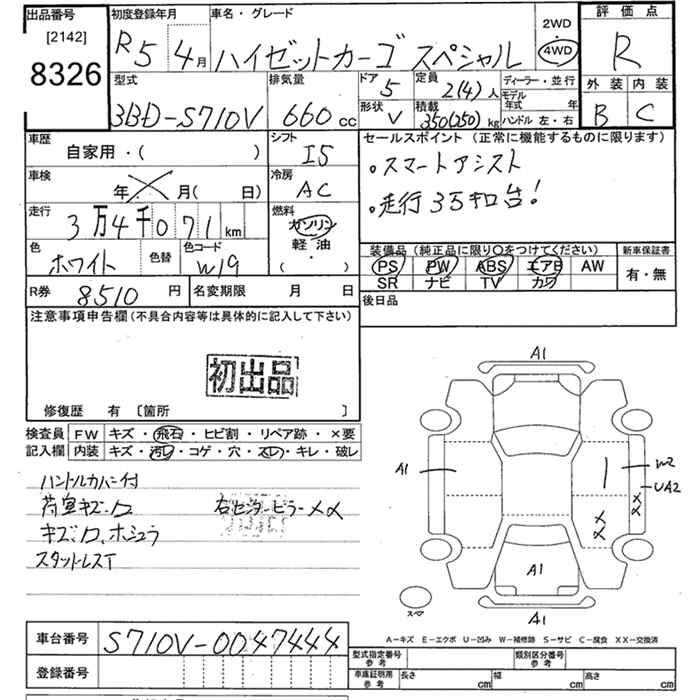 出品番号
[2142]
8326
初度登録年月
R5 4月
車名・グレード
ハイゼットカーゴ スペシャル
2WD
・
4WD
評価点
R
外装 内装
B C
型式
3BD-S710V
排気量
660 cc
ドア
5
形状
V
定員
2(4)人
積載
350(250)kg
ディーラー・並行
モデル
年式 年
ハンドル 左・右
車歴
自家用・( )
シフト
I5
セールスポイント (正常に機能するものに限ります)
。スマートアシスト
。走行3万キロ台!
車検
年 月( 日)
冷房
AC
走行
3万4千071 km
燃料
ガソリン
軽油
( ・ )
色
ホワイト
色替
色コード
W19
装備品 (純正品に限り○をつけてください)
PS PW ABS エアB AW
SR ナビ TV カワ
新車保証書
有・無
R券 8510 円
名変期限 月 日
後日品
注意事項申告欄 (不具合内容等は具体的に記入して下さい)
初出品
修復歴 有 〔箇所 〕
検査員 FW キズ・飛石・ヒビ割・リペア跡・×要
記入欄 内装 キズ・汚レ・コゲ・穴・スレ・キレ・破レ
ハンドルカバー付
荷室キズ、ロ 右センターピラーXX
キズ、ロ、ホシュラ
スタットレスT
A1
A1
W2
UA2
XX
XX
A1
A1
スペア
A-キズ E-エクボ U-凹み W-補修跡 S-サビ C-腐食 XX-交換済
車台番号 S710V-0047444
登録番号
型式指定番号
参考
類別区分番号
参考
車庫証明用
参考
長さ cm 幅 cm 高さ cm